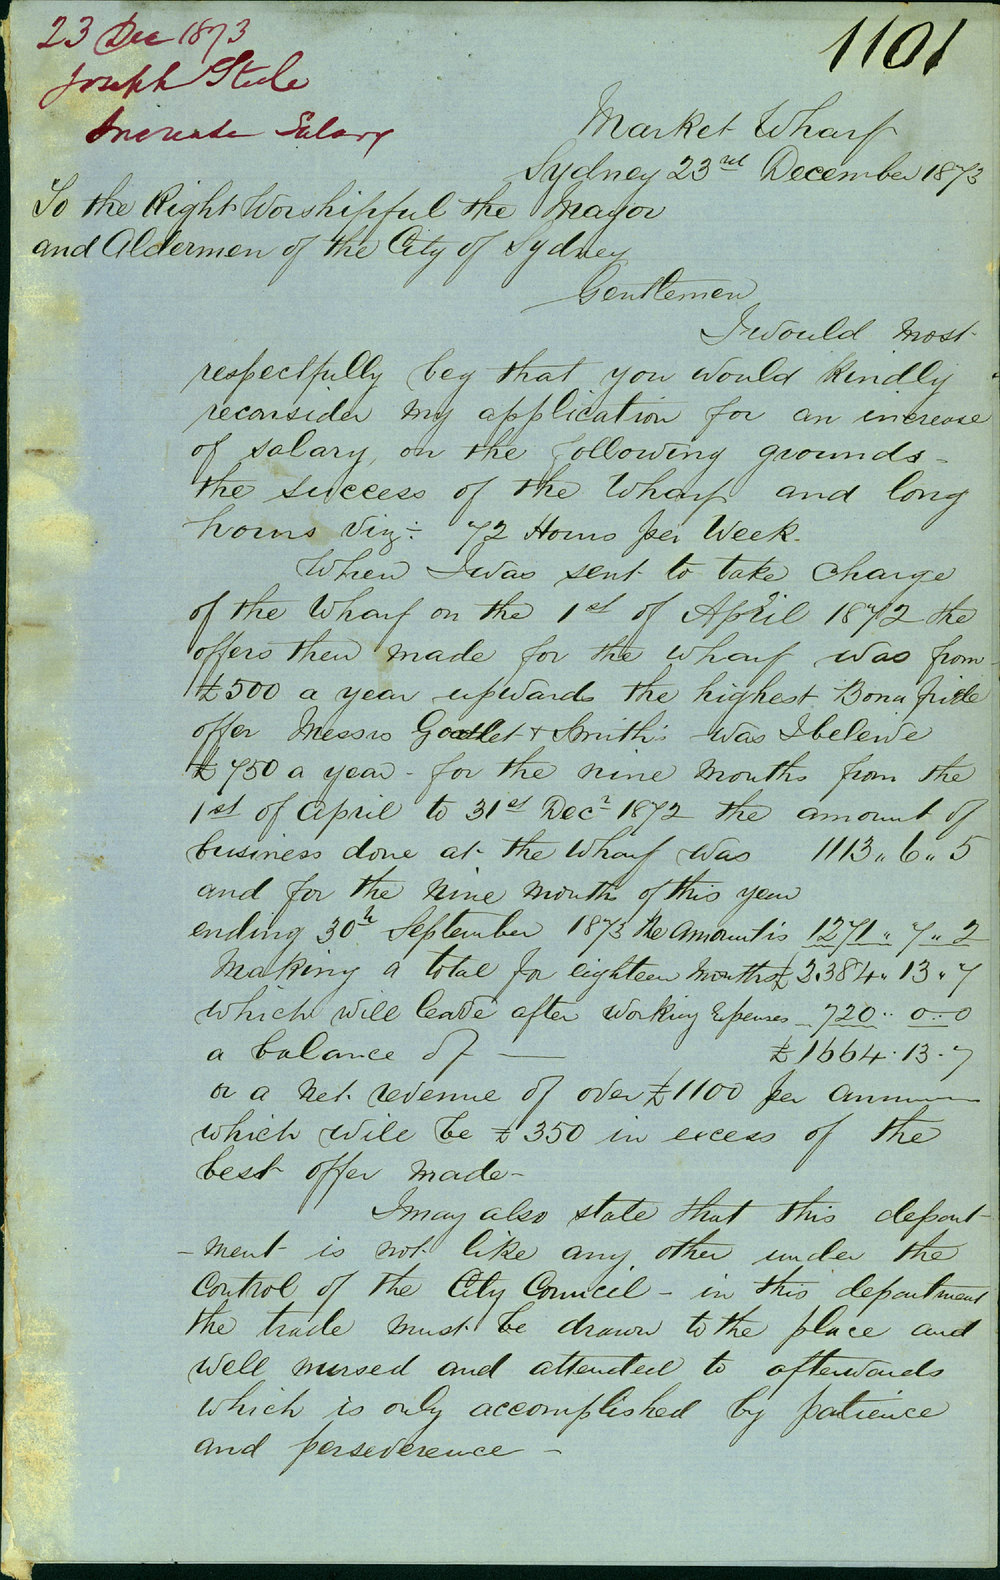 23 Dec 1873
Joseph Steele
Increase Salary
1101
Market Wharf
Sydney 23rd December 1873
To the Right Worshipful the Mayor
and Aldermen of the City of Sydney
Gentlemen
I would most
respectfully beg that you would kindly
reconsider my application for an increase
of salary, on the following grounds -
the success of the Wharf and long
hours viz:- 72 Hours per Week.
When I was sent to take charge
of the Wharf on the 1st of April 1872 the
offers then made for the wharf was from
£500 a year upwards the highest Bona fide
offer Messrs Goodlet & Smith's was I beleive
£750 a year - for the nine months from the
1st of April to 31st Decr 1872 the amount of
business done at the Wharf was 1113 " 6 " 5
and for the nine month of this year
ending 30th September 1873 the amount is 1271 " 7 " 2
Making a total for eighteen months £2384 " 13 " 7
which will leave after working Expenses 720 " 0 " 0
a balance of — £1664 . 13 . 7
or a net revenue of over £1100 per annum
which will be £350 in excess of the
best offer made -
I may also state that this depart-
-ment is not like any other under the
Control of the City Council - in this department
the trade must be drawn to the place and
well nursed and attended to afterwards
which is only accomplished by patience
and perseverence -